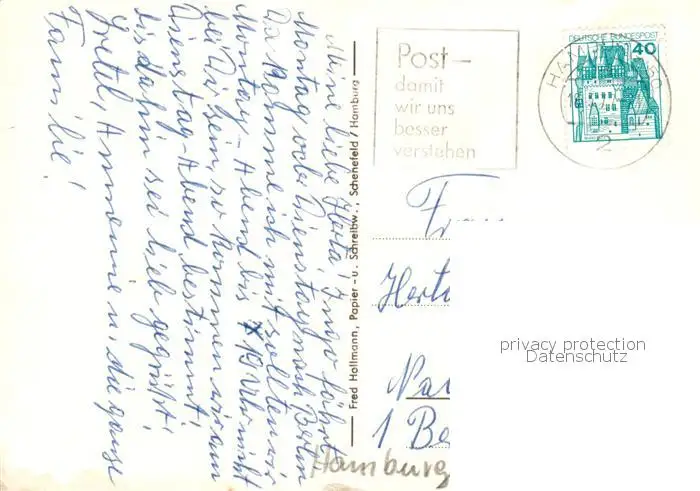 Meine liebe Herta! Ingo fährt
Montag oder Dienstag nach Berlin
Da komme ich mit, sollten wir
Montag-Abend bis 19 Uhr nicht
bei Dir sein so kommen wir am
Dienstag-Abend bestimmt!
Bis dahin sei lieb gegrüßt!
Gretel, Annemie u. die ganze
Familie!
Fred Hollmann, Papier- u. Schreibw., Schenefeld / Hamburg
Post –
damit
wir uns
besser
verstehen
DEUTSCHE BUNDESPOST
40
HAM
2
Herta
1 Be
privacy protection
Datenschutz
Hamburg